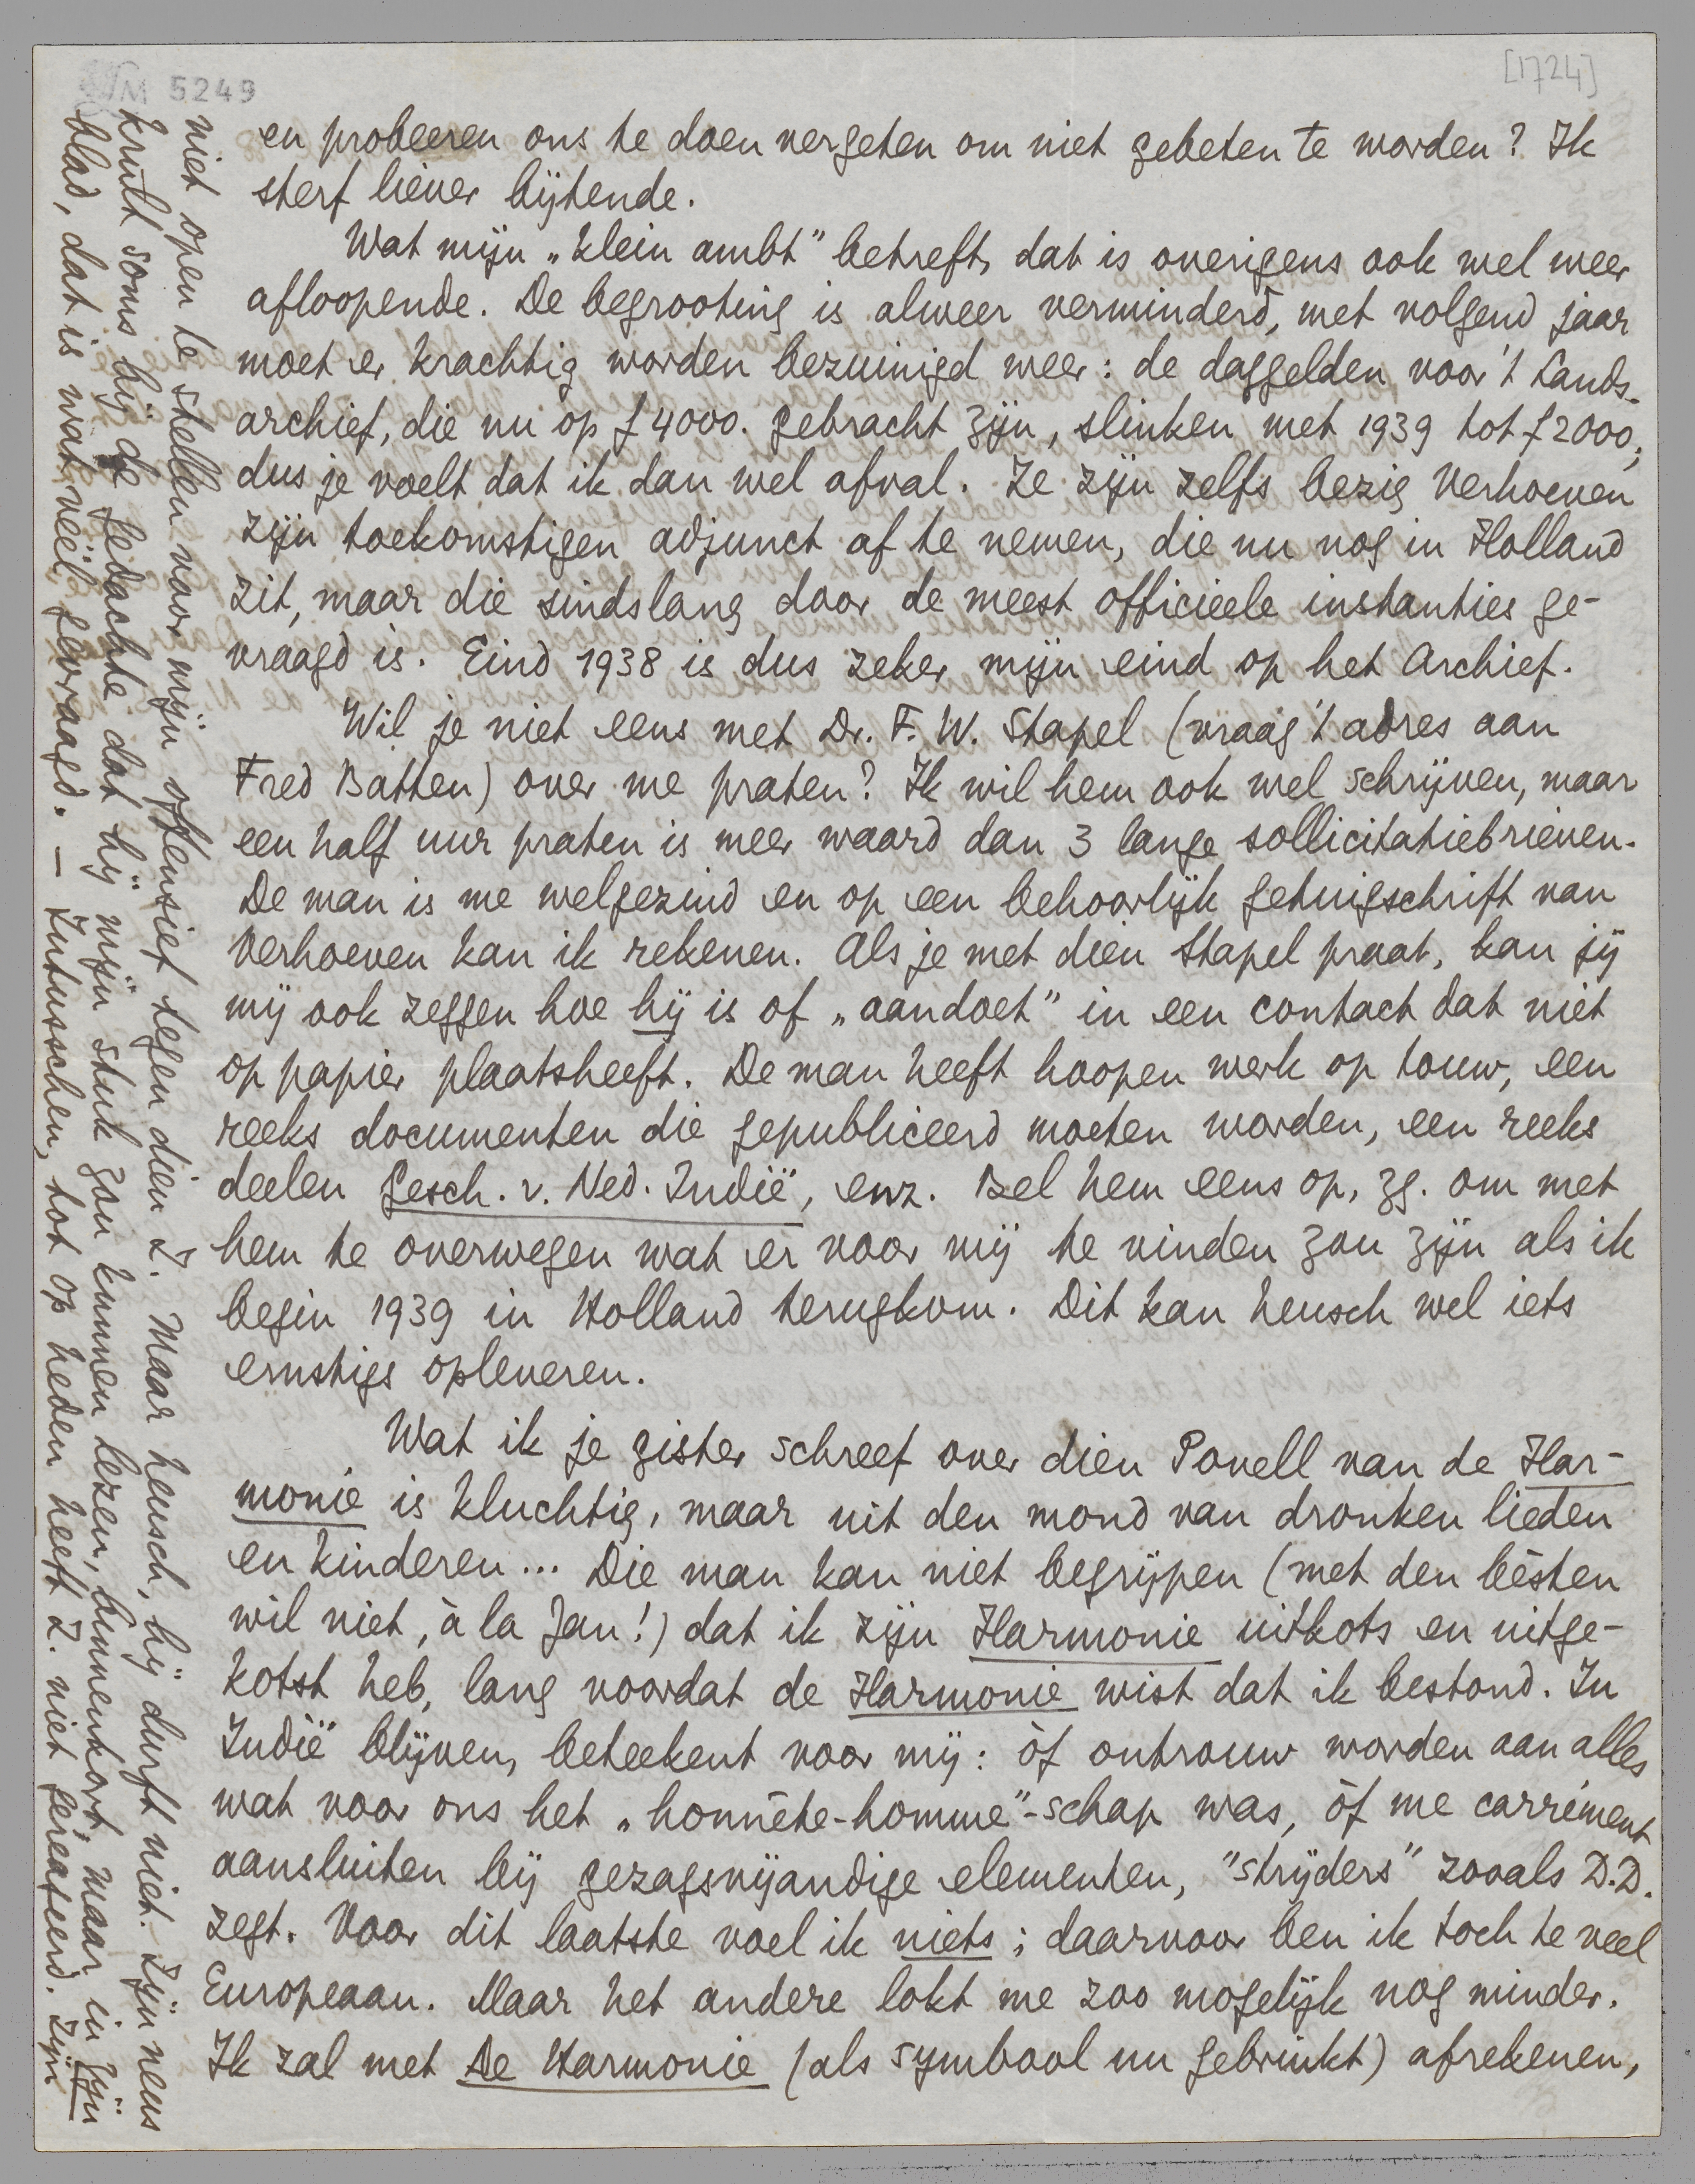 NM 5249
[1724]
en probeeren ons te doen vergeten om niet gebeten te worden? Ik
sterf liever bijtende.
Wat mijn „klein ambt” betreft, dat is overigens ook wel weer
afloopende. De begrooting is alweer verminderd, met volgend jaar
moet er krachtig worden bezuinigd weer: de daggelden voor 't Lands-
archief, die nu op f 4000. gebracht zijn, slinken met 1939 tot f 2000;
dus je voelt dat ik dan wel afval. Ze zijn zelfs bezig Verhoeven
zijn toekomstigen adjunct af te nemen, die nu nog in Holland
zit, maar die sindslang door de meest officieele instanties ge-
vraagd is. Eind 1938 is dus zeker mijn eind op het Archief.
Wil je niet eens met Dr. F. W. Stapel (vraag 't adres aan
Fred Batten) over me praten? Ik wil hem ook wel schrijven, maar
een half uur praten is meer waard dan 3 lange sollicitatiebrieven.
De man is me welgezind en op een behoorlijk getuigschrift van
Verhoeven kan ik rekenen. Als je met dien Stapel praat, kan jij
mij ook zeggen hoe hij is of „aandoet” in een contact dat niet
op papier plaatsheeft. De man heeft hoopen werk op touw, een
reeks documenten die gepubliceerd moeten worden, een reeks
deelen Gesch. v. Ned. Indië, enz. Bel hem eens op, zg. om met
hem te overwegen wat er voor mij te vinden zou zijn als ik
begin 1939 in Holland terugkom. Dit kan heusch wel iets
ernstigs opleveren.
Wat ik je gister schreef over dien Povell van de Har-
monie is kluchtig, maar uit den mond van dronken lieden
en kinderen... Die man kan niet begrijpen (met den bèsten
wil niet, à la Jan!) dat ik zijn Harmonie uitkots en uitge-
kotst heb, lang voordat de Harmonie wist dat ik bestond. In
Indië blijven, beteekent voor mij: òf ontrouw worden aan alles
wat voor ons het „honnête-homme”-schap was, òf me carrément
aansluiten bij gezagsvijandige elementen, "strijders" zooals D.D.
zegt. Voor dit laatste voel ik niets; daarvoor ben ik toch te veel
Europeaan. Maar het andere lokt me zoo mogelijk nog minder.
Ik zal met De Harmonie (als symbool nu gebruikt) afrekenen,
niet open te stellen voor mijn offensief tegen dien Z. Maar heusch, hij durft niet. Zijn neus
krult soms bij de gedachte dat hij mijn stuk zou kunnen lezen, binnenkort, maar in zijn
blad, dat is wat véél gevraagd. — Intusschen, tot op heden heeft Z. niet gereageerd. Zijn